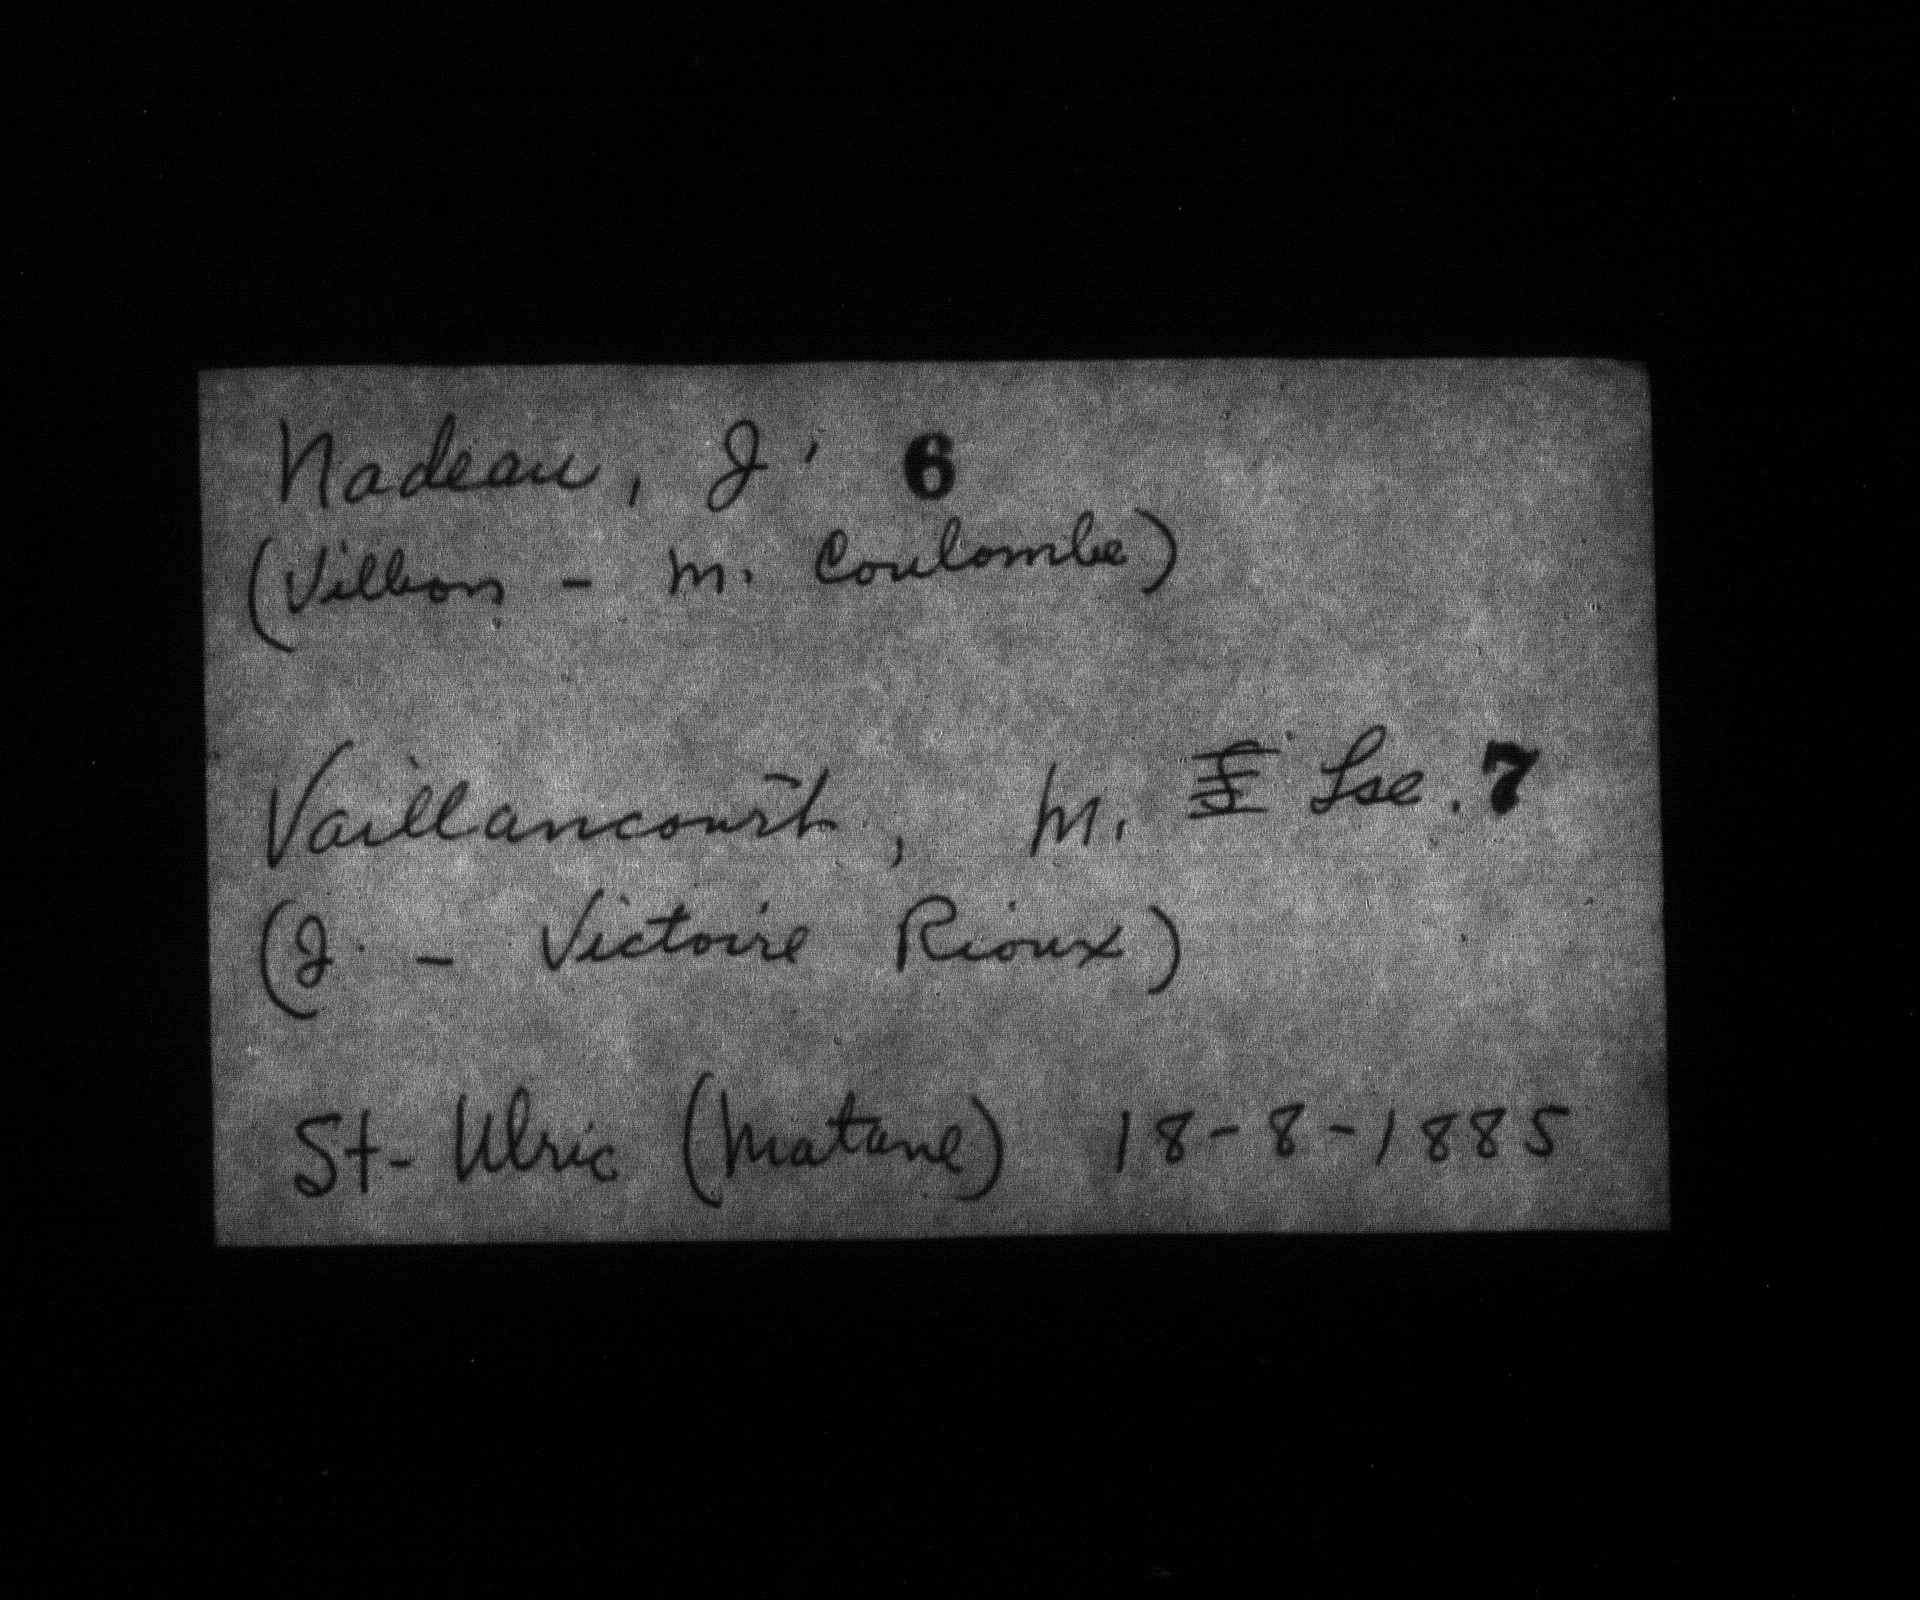 Nadeau, J' 6
(Villeon - M. Coulombe)
Vaillancourt, M. Lse. 7
(J. - Victoire Rioux)
St-Ulric (Matane) 18-8-1885